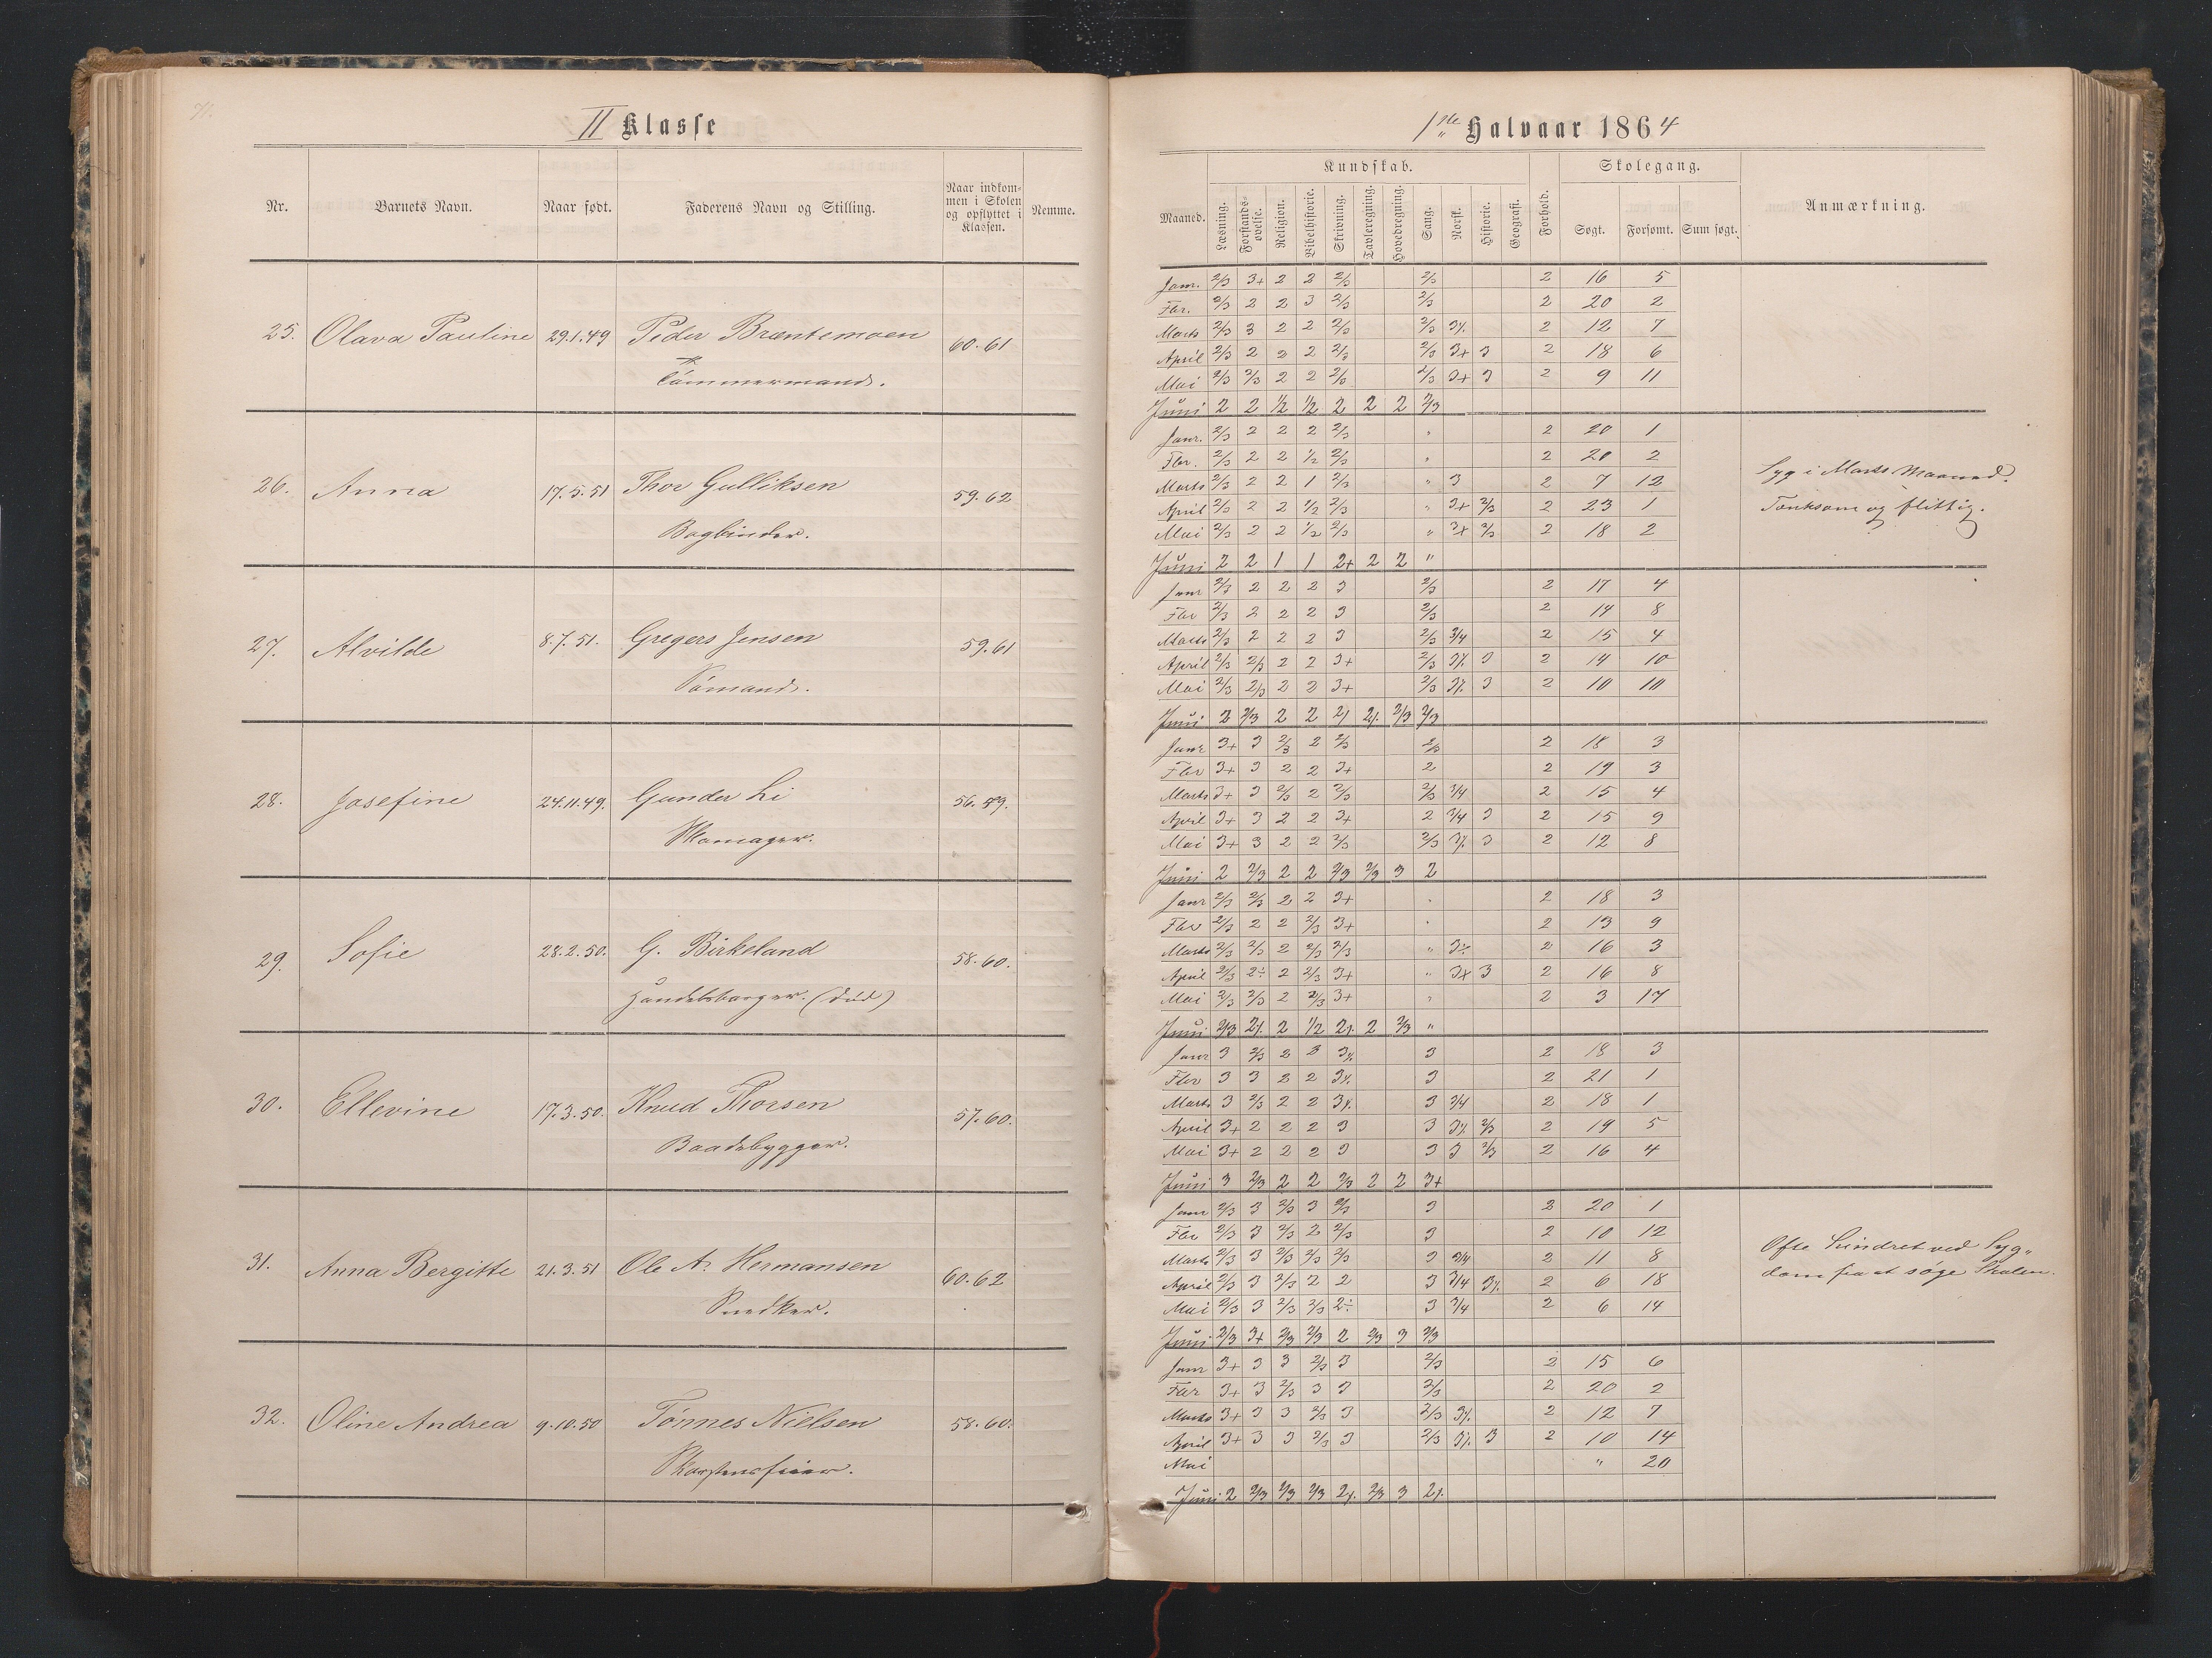 71.
II Klasse
Nr. Barnets Navn. Naar født. Faderens Navn og Stilling. Naar indkommen i Skolen og opflyttet i Klassen. Nemme.
25. Olava Pauline 29.1.49 Peder Bræntemoen 60.61
Tømmermand.
26. Anna 17.5.51 Thor Gulliksen 59.62
Bogbinder.
27. Alvilde 8.7.51. Gregers Jensen 59.61
Sømand.
28. Josefine 24.11.49. Gunder Li 56.59.
Skomager.
29. Sofie 28.2.50. G. Birkeland 58.60.
Handelsborger. (død)
30. Ellevine 17.3.50. Knud Thorsen 57.60.
Baadebygger.
31. Anna Bergitte 21.3.51 Ole A. Hermansen 60.62
Snedker.
32. Oline Andrea 9.10.50 Tönnes Nielsen 58.60.
Skorstensfeier.
1ste Halvaar 1864
Kundskab. Skolegang.
Maaned. Læsning. Forstandsøvelse. Religion. Bibelhistorie. Skrivning. Tavleregning. Hovedregning. Sang. Norsk. Historie. Geografi. Forhold. Søgt. Forsømt. Sum søgt. Anmærkning.
Janr. 2/3 3+ 2 2 2/3 2/3 2 16 5
Fbr. 2/3 2 2 3 2/3 2/3 2 20 2
Marts 2/3 3 2 2 2/3 2/3 3% 2 12 7
April 2/3 2 2 2 2/3 2/3 3+ 3 2 18 6
Mai 2/3 2/3 2 2 2/3 2/3 3+ 3 2 9 11
Juni 2 2 1/2 1/2 2 2 2 2/3
Janr. 2/3 2 2 2 2/3 " 2 20 1
Fbr. 2/3 2 2 1/2 2/3 " 2 20 2
Marts 2/3 2 2 1 2/3 " 3 2 7 12
Syg i Marts Maaned.
April 2/3 2 2 1/2 2/3 " 3+ 2/3 2 23 1
Tænksom og flittig.
Mai 2/3 2 2 1/2 2/3 " 3+ 2/3 2 18 2
Juni 2 2 1 1 2+ 2 2 "
Janr 2/3 2 2 2 3 2/3 2 17 4
Fbr 2/3 2 2 2 3 2/3 2 14 8
Marts 2/3 2 2 2 3 2/3 3/4 2 15 4
April 2/3 2/3 2 2 3+ 2/3 3% 3 2 14 10
Mai 2/3 2/3 2 2 3+ 2/3 3% 3 2 10 10
Juni 2 2/3 2 2 2% 2/3 2/3
Janr 3+ 3 2/3 2 2/3 2/3 2 18 3
Fbr 3+ 3 2 2 3+ 2 2 19 3
Marts 3+ 3 2/3 2 2/3 2/3 3/4 2 15 4
April 3+ 3 2 2 3+ 2 3/4 3 2 15 9
Mai 3+ 3 2 2 2/3 2/3 3% 3 2 12 8
Juni 2 2/3 2 2 2/3 2/3 3 2
Janr 2/3 2/3 2 2 3+ " 2 18 3
Fbr 2/3 2 2 2/3 3+ " 2 13 9
Marts 2/3 2/3 2 2/3 2/3 " 3÷ 2 16 3
April 2/3 2÷ 2 2/3 3+ " 3+ 3 2 16 8
Mai 2/3 2/3 2 2/3 3+ " 2 3 17
Juni 2/3 2% 2 1/2 2% 2 2/3 "
Janr 3 2/3 2 3 3% 3 2 18 3
Fbr 3 3 2 2 3% 3 2 21 1
Marts 3 2/3 2 2 3% 3 3/4 2 18 1
April 3+ 2 2 2 3 3 3% 2/3 2 19 5
Mai 3+ 2 2 2 3 3 3 2/3 2 16 4
Juni 3 2/3 2 2 2/3 2 2 3+
Janr 2/3 3 2/3 3 2/3 3 2 20 1
Fbr 2/3 3 2/3 2 2/3 3 2 10 12
Ofte hindret ved Syg„
Marts 2/3 3 2/3 2/3 2/3 3 3/4 2 11 8
dom fra at søge Skolen.
April 2/3 3 2/3 2 2 3 3/4 3% 2 6 18
Mai 2/3 3 2/3 2/3 2÷ 3 3/4 2 6 14
Juni 2/3 3+ 2/3 2/3 2 2/3 3 2/3
Janr 3+ 3 3 2/3 3 2/3 2 15 6
Fbr 3+ 3 2/3 3 3 2/3 2 20 2
Marts 3+ 3 3 2/3 3 2/3 3% 2 12 7
April 3+ 3 3 2/3 3 2/3 3% 3 2 10 14
Mai " 20
Juni 2 2/3 2/3 2/3 2% 2/3 3 2%